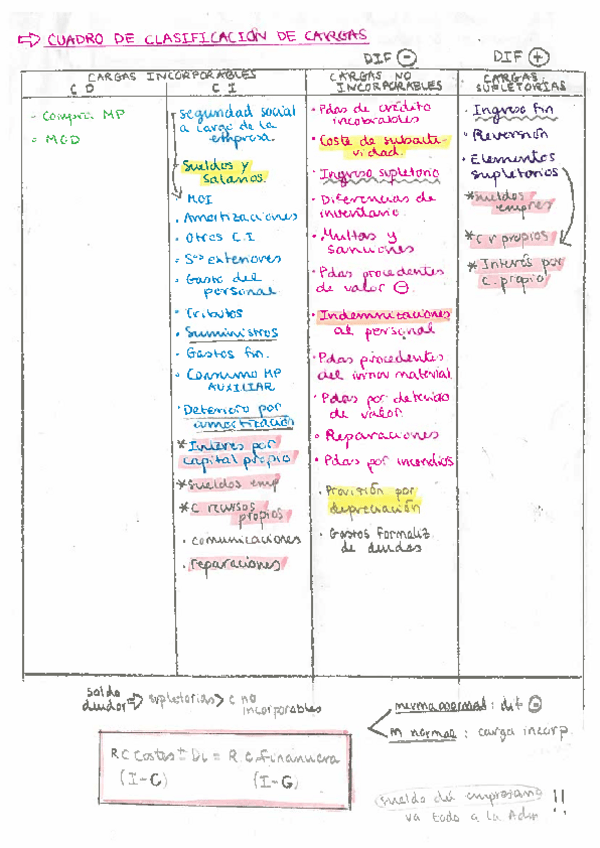 ⇒ CUADRO DE CLASIFICACIÓN DE CARGAS
DIF ⊖
DIF ⊕
CARGAS INCORPORABLES
CD
CI
CARGAS NO
INCORPORABLES
CARGAS
SUPLETORIAS
- Compra MP
- MOD
- seguridad social
a cargo de la
empresa.
- Sueldos y
Salarios.
MOI
· Amortizaciones
· Otros C.I
· Sos exteriores
· Gasto del
personal
· Tributos
· Suministros
· Gastos fin.
· Consumo MP
AUXILIAR
· Deterioro por
amortización
* Interes por
capital propio
* Sueldos emp
* C recursos
propios
· comunicaciones
· reparaciones
· Pdas de crédito
incobrables
· Coste de subacti-
vidad.
· Ingreso supletorio
· Diferencias de
inventario.
· Multas y
sanciones
· Pdas procedentes
de valor ⊖.
· Indemnizaciones
al personal
· Pdas procedentes
del inmov material
· Pdas por deterioro
de valor
· Reparaciones
· Pdas por incendios
· Provisión por
depreciación
· Gastos formaliz
de deudas
· Ingreso fin
· Reversión
· Elementos
supletorios
* Sueldos
empres
* C r propios
* Interés por
c. propio
saldo
deudor ⇒ supletorias > c no
incorporables
merma anormal : dif ⊖
m normal : carga incorp.
R C Costes ± Di = R. C. Financiera
(I-C) (I-G)
sueldo del empresario !!
va todo a la Adm